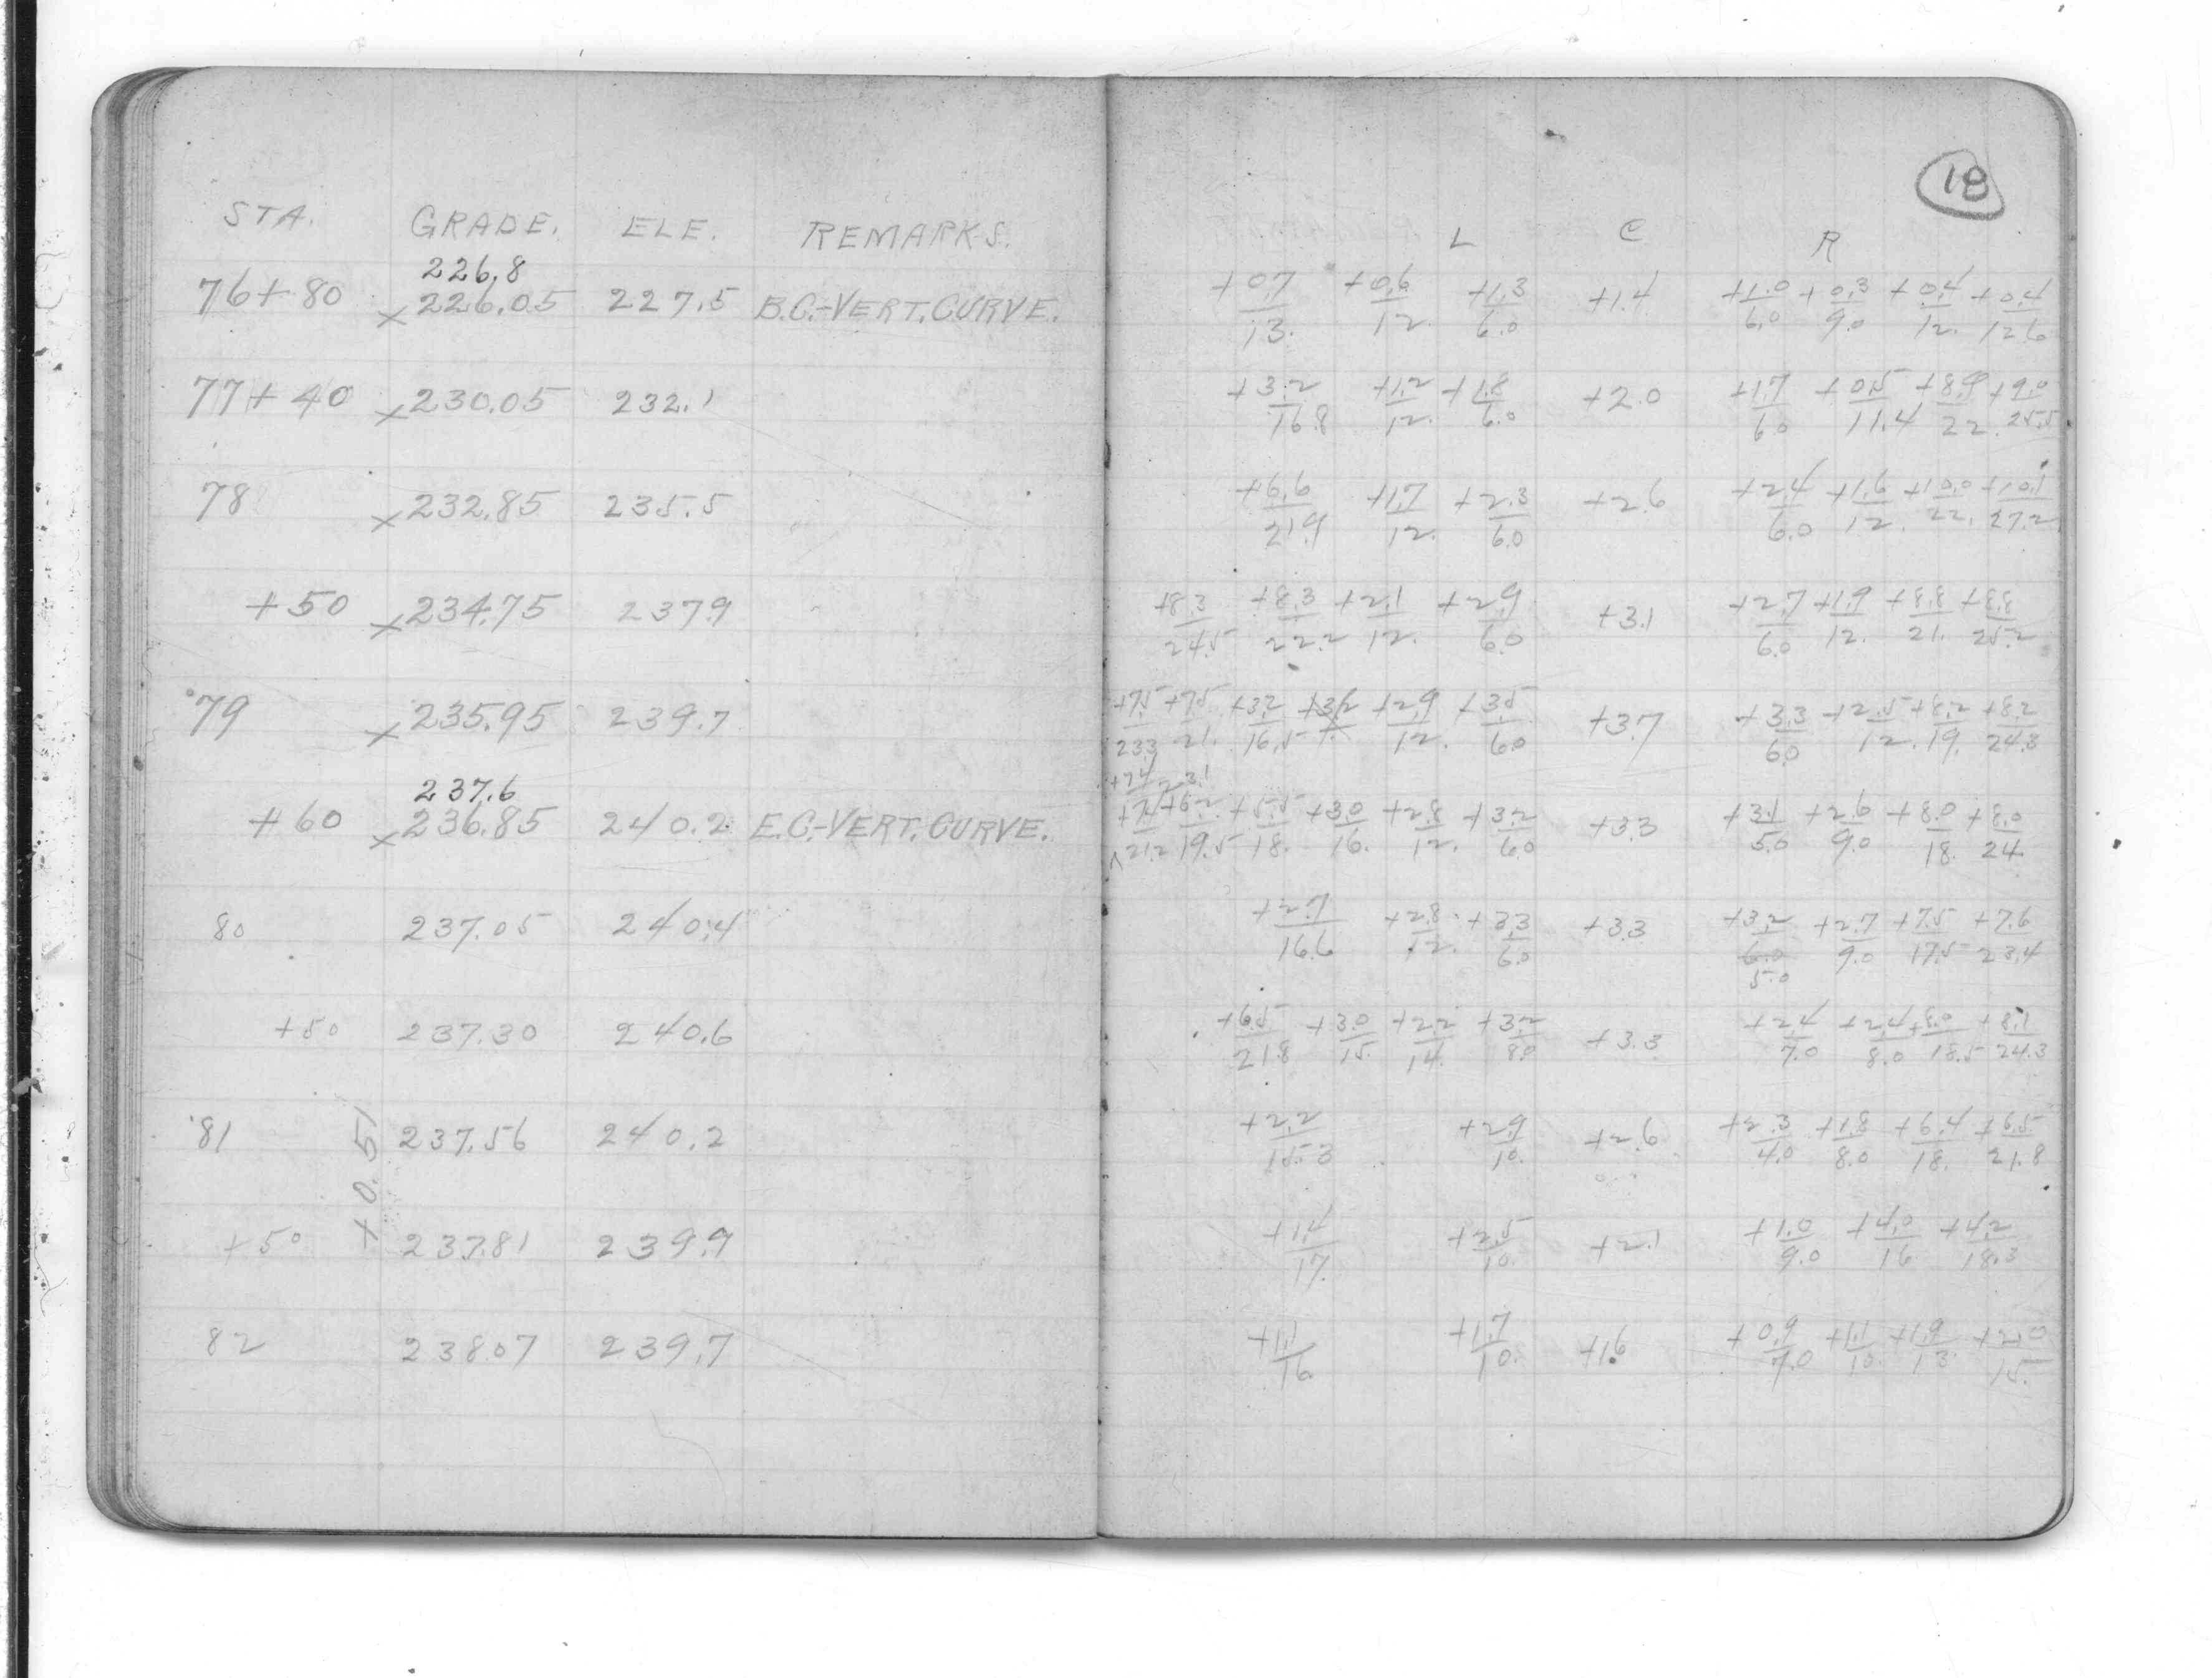 18
STA. GRADE. ELE. REMARKS. L C R
226.8
76+80 x226.05 227.5 B.C.-VERT.CURVE. +0.7/13. +0.6/12. +1.3/6.0 +1.4 +1.0/6.0 +0.3/9.0 +0.4/12. +0.4/12.6
77+40 x230.05 232.1 +3.2/16.8 +1.2/12. +1.8/6.0 +2.0 +1.7/6.0 +0.5/11.4 +8.9/22. +9.0/25.5
78 x232.85 235.5 +6.6/21.9 +1.7/12. +2.3/6.0 +2.6 +2.4/6.0 +1.6/12. +10.0/22. +10.1/27.2
+50 x234.75 237.9 +8.3/24.5 +8.3/22.2 +2.1/12. +2.9/6.0 +3.1 +2.7/6.0 +1.9/12. +8.8/21. +8.8/25.2
79 x235.95 239.7 +7.5/23.3 +7.5/21. +3.2/16.5 +2.9/12. +3.5/6.0 +3.7 +3.3/6.0 +2.5/12. +8.2/19. +8.2/24.3
237.6 +7.4/23.1
+60 x236.85 240.2 E.C.-VERT.CURVE. +7.4/21.2 +6.2/19.5 +5.5/18. +3.0/16. +2.8/12. +3.2/6.0 +3.3 +3.1/5.0 +2.6/9.0 +8.0/18. +8.0/24.
80 237.05 240.4 +2.7/16.6 +2.8/12. +3.3/6.0 +3.3 +3.2/6.0 +2.7/9.0 +7.5/17.5 +7.6/23.4
5.0
+50 237.30 240.6 +6.5/21.8 +3.0/15. +2.2/14. +3.2/8.0 +3.3 +2.4/7.0 +2.4/8.0 +8.0/18.5 +8.1/24.3
81 237.56 240.2 +2.2/15.3 +2.9/10. +2.6 +2.3/4.0 +1.8/8.0 +6.4/18. +6.5/21.8
+0.51
+50 237.81 239.9 +1.4/17. +2.5/10. +2.1 +1.0/9.0 +4.0/16 +4.2/18.3
82 238.07 239.7 +1.1/16. +1.7/10. +1.6 +0.9/7.0 +1.1/10. +1.9/13. +2.0/15.